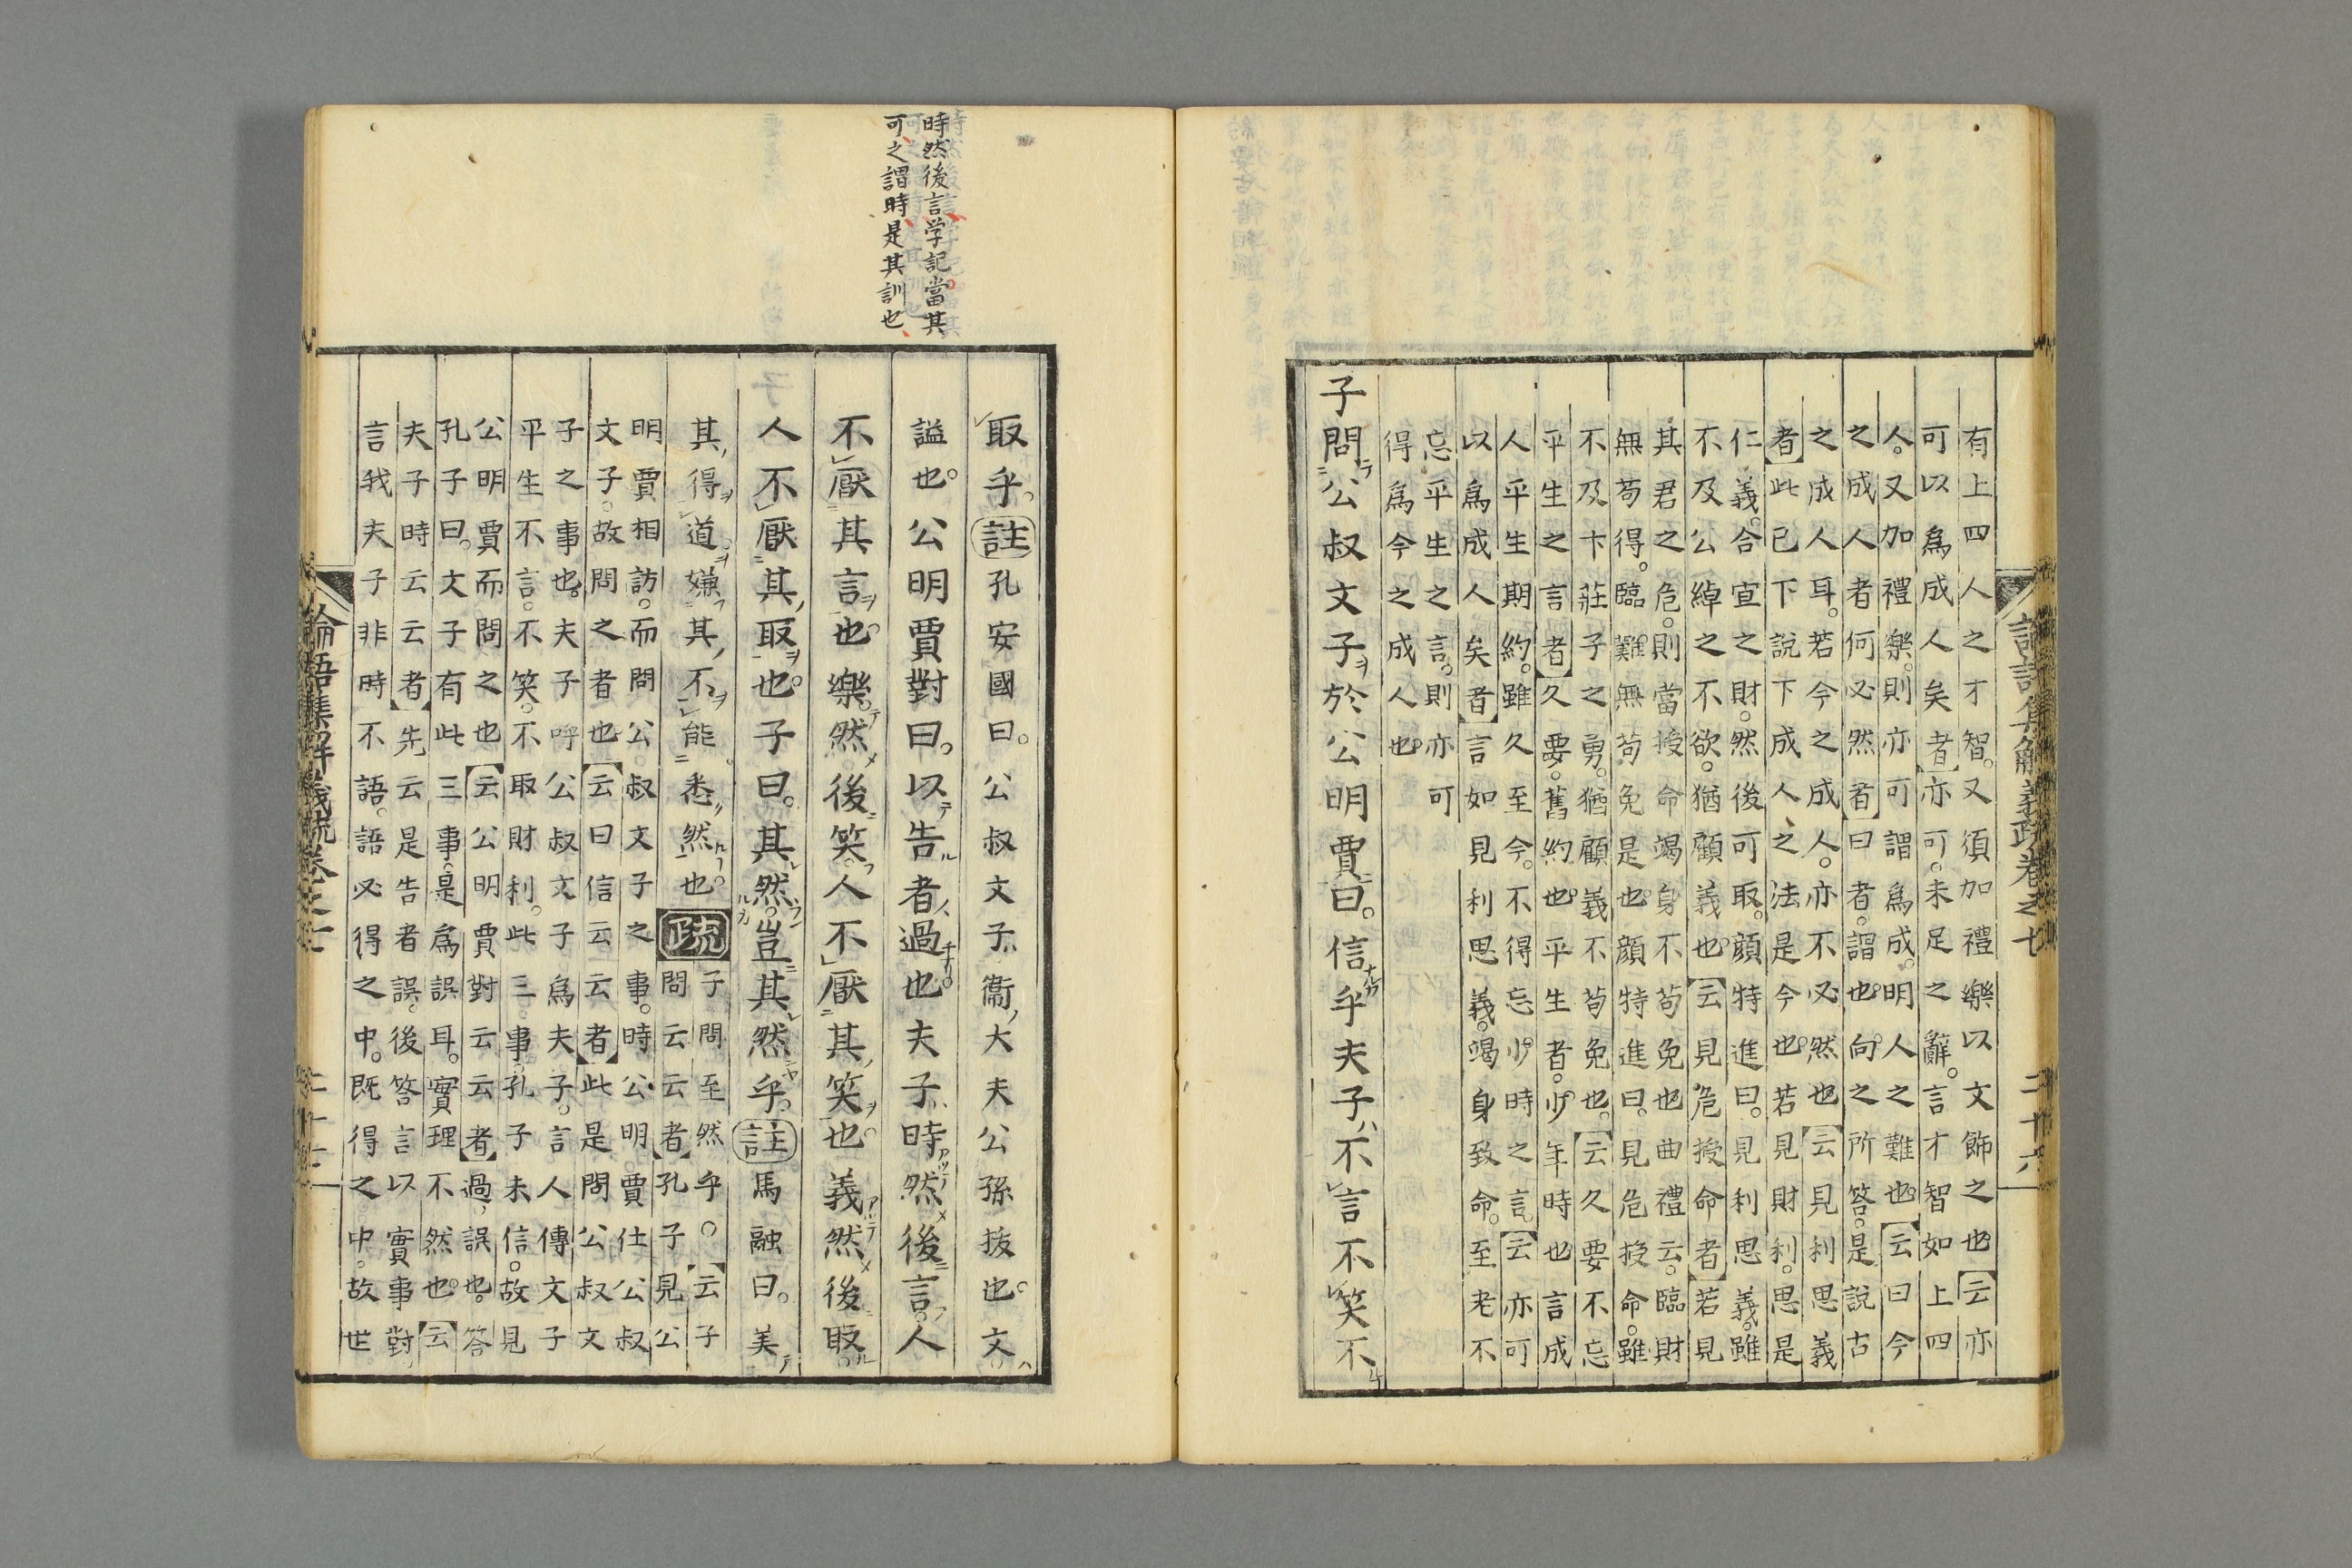 論語集解義疏卷之七
二十六
有上四人之才智。又須加禮樂以文飾之也云亦
可以爲成人矣者亦可。未足之辭。言才智如上四
人。又加禮樂。則亦可謂爲成。明人之難也云曰今
之成人者何必然者曰者。謂也。向之所答。是說古
之成人耳。若今之成人。亦不必然也云見利思義
者此已下說下成人之法是今也。若見財利。思是
仁義。合宜之財。然後可取。顔特進曰。見利思義。雖
不及公綽之不欲。猶顧義也。云見危授命者若見
其君之危。則當授命竭身不苟免也曲禮云。臨財
無苟得。臨難無苟免是也。顔特進曰。見危授命。雖
不及卞莊子之勇。猶顧義不苟免也。云久要不忘
平生之言者久要。舊約也。平生者。少年時也言成
人平生期約。雖久至今。不得忘少時之言。云亦可
以爲成人矣者言如見利思義。竭身致命。至老不
忘平生之言。則亦可
得爲今之成人也
子問公叔文子ヲ於公明賈曰。信乎夫子ハ不言不笑不
時然後言学記當其
可之謂時是其訓也
取乎。註孔安國曰。公叔文子衞ノ大夫公孫拔也。文ハ
謚也。公明賈對曰。以テ告ル者ノ過也。夫子ハ時然メ後言フ。人
不厭其言ヲ也。樂テ然メ後笑フ。人不厭其ノ笑ヲ也。義然メ後取ル。
人不厭其ノ取ヲ也。子曰。其レ然。豈其レ然ヤ乎。註馬融曰。美テ
其ノ得ヲ道。ヲ嫌フ其ノ不ヲ能悉ク然也。疏子問至然乎。○云子
問云云者孔子見公
明賈相訪。而問公叔文子之事。時公明賈仕公叔
文子。故問之者也云曰信云云者此是問公叔文
子之事也。夫子呼公叔文子爲夫子。言人傳文子
平生不言。不笑。不取財利。此三事。孔子未信。故見
公明賈而問之也云公明賈對云云者過。誤也。答
孔子曰。文子有此三事。是爲誤耳。實理不然也。云
夫子時云云者先云是告者誤。後答言以實事對
言我夫子非時不語。語必得之中。既得之中。故世
論語集解義疏卷之七
二十七